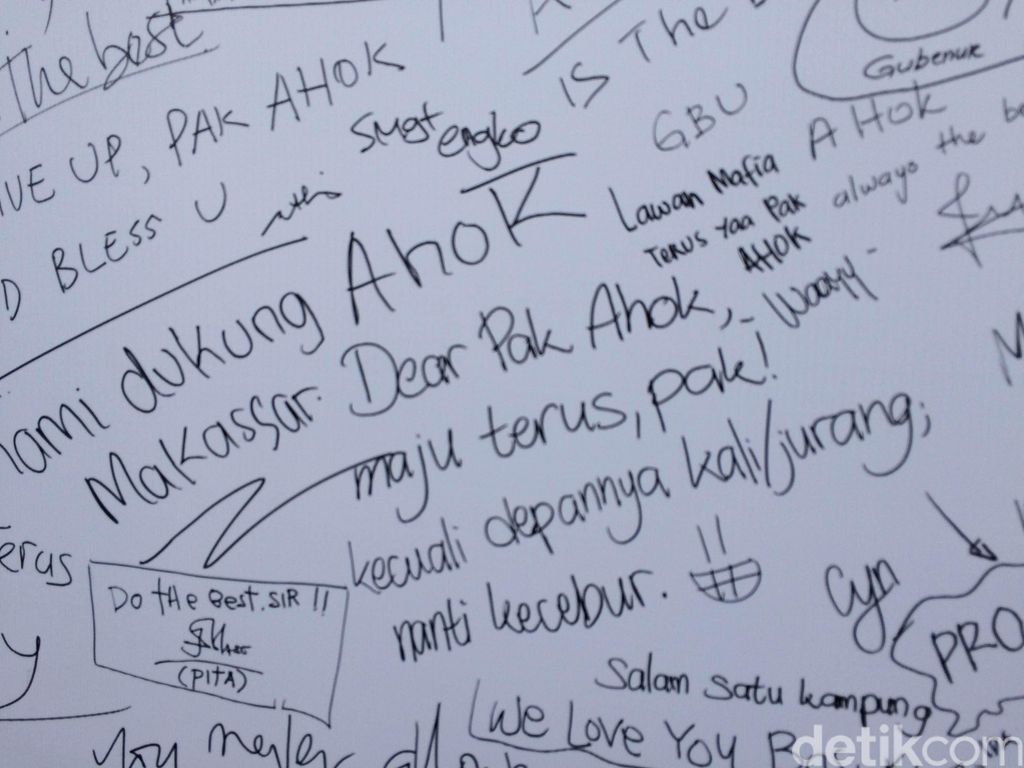 The best
IVE UP, PAK AHOK
D BLESS U
smgt engko
IS THE
GBU
Gubenur
AHOK
always the be
Lawan Mafia
Terus Yaa Pak
AHOK
- Waayy -
kami dukung AhoK
Makassar.
Dear Pak Ahok,
maju terus, pak!
kecuali depannya kali/jurang;
nanti kecebur.
erus
Do tHe Best. SIR !!
(PITA)
Cyn
PRO
Salam satu kampung
We Love You
You
detikcom